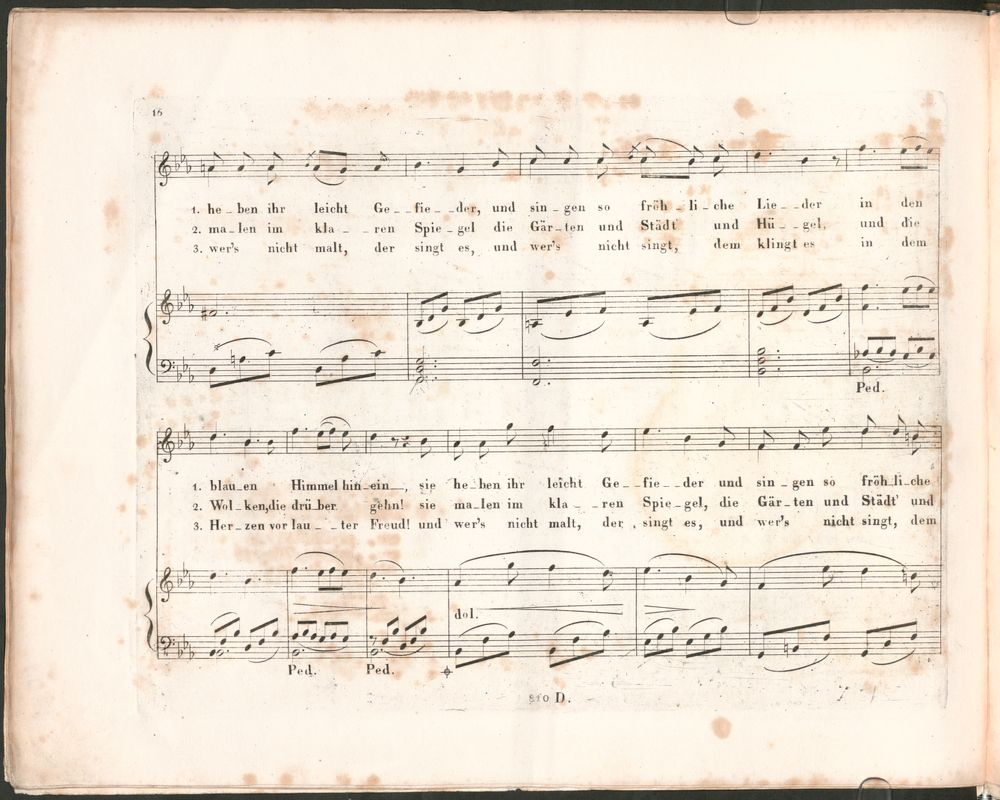 16
1. he_ben ihr leicht Ge__fie__der, und sin_gen so fröh_li_che Lie__der in den
2. ma_len im kla__ren Spie_gel die Gär_ten und Städt' und Hü__gel, und die
3. wer's nicht malt, der singt es, und wer's nicht singt, dem klingt es in dem
Ped.
1. blau_en Himmel hin_ein_, sie he_ben ihr leicht Ge__fie__der und sin_gen so fröh_li_che
2. Wol_ken, die drü_ber gehn! sie ma_len im kla__ren Spie_gel, die Gär_ten und Städt' und
3. Her_zen vor lau__ter Freud! und wer's nicht malt, der singt es, und wer's nicht singt, dem
dol.
Ped. Ped.
810 D.